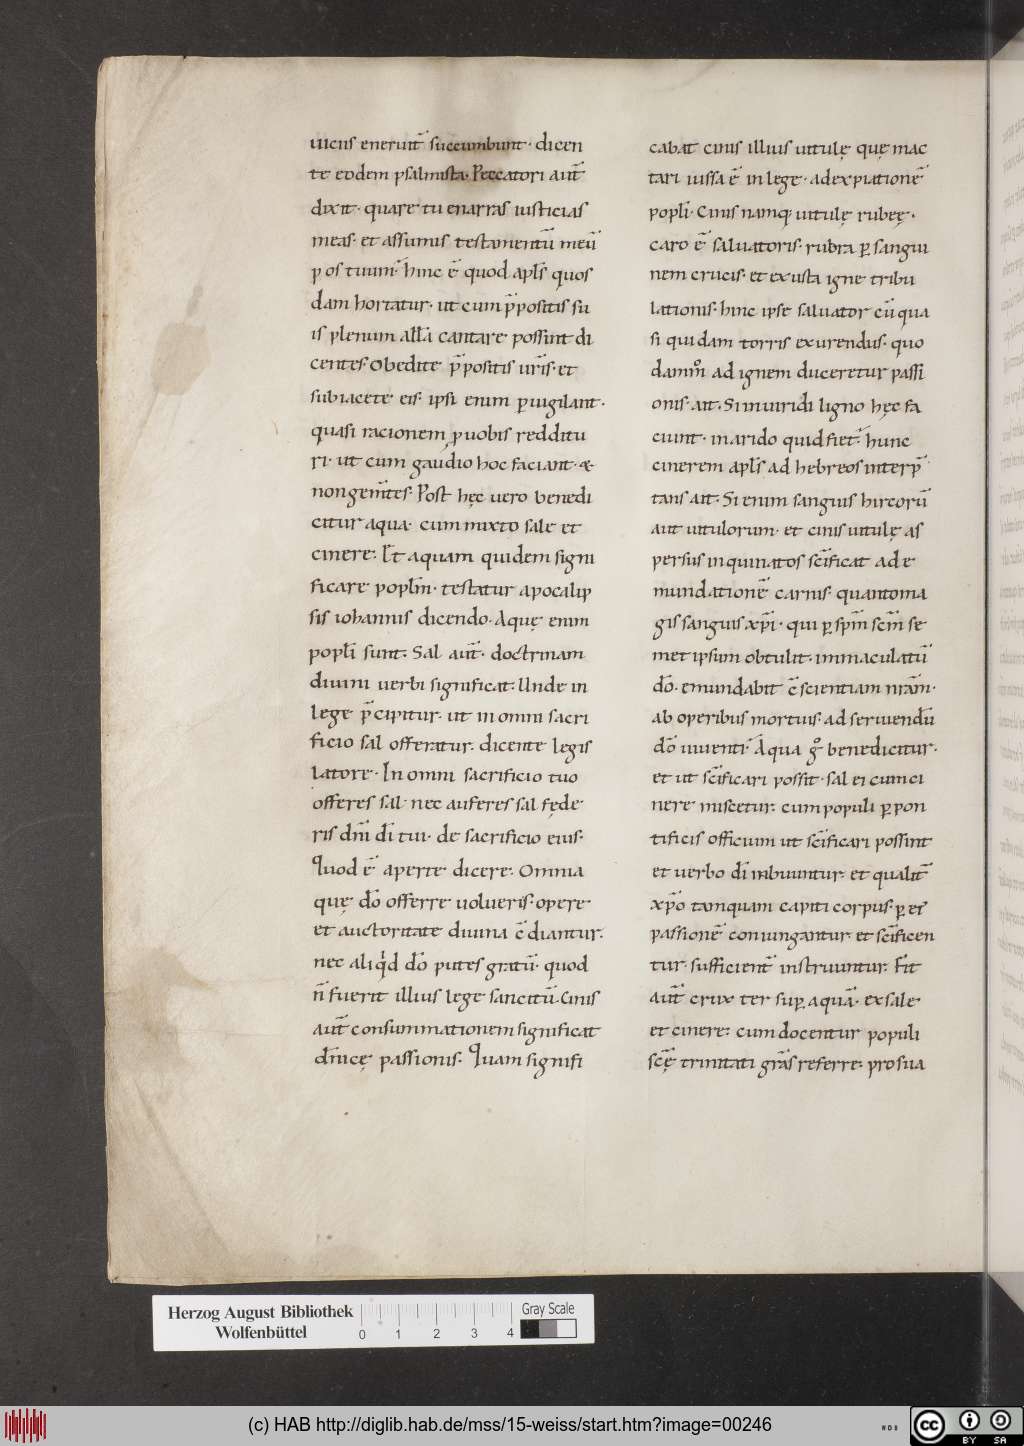 uiciis eneruit̄ succumbunt· dicen
te eodem psalmista· Peccatori aut̄
dixit· quare tu enarras iusticias
meas· et assumis testamentū meū
p os tuum· hinc ē quod apl̄s quos
dam hortatur· ut cum p̄positis su
is plenum all̄a cantare possint di
centes· Obedite p̄positis ur̄is· et
subiacete eis· ipsi enim ꝑuigilant·
quasi racionem ꝓ uobis redditu
ri· ut cum gaudio hoc faciant· &
non gem̄tes· Post hęc uero benedi
citur aqua· cum mixto sale et
cinere· Et aquam quidem signi
ficare popl̄m· testatur apocalip
sis iohannis dicendo· Aquę enim
popl̄i sunt· Sal aut̄· doctrinam
diuini uerbi significat· Unde in
lege p̄cipitur· ut in omni sacri
ficio sal offeratur· dicente legis
latore· In omni sacrificio tuo
offeres sal· nec auferes sal fęde
ris dn̄i dī tui· de sacrificio eius·
Quod ē aperte dicere· Omnia
quę dō offerre uolueris· opere
et auctoritate diuina c̄diantur·
nec aliqd dō putes gratū· quod
n̄ fuerit illius lege sancitū· Cinis
aut̄ consummationem significat
dn̄icę passionis· Quam signifi
cabat cinis illius uitulę quę mac
tari iussa ē in lege· ad expiationē
popl̄i· Cinis namq; uitulę rubeę·
caro ē saluatoris· rubra ꝑ sangui
nem crucis· et exusta igne tribu
lationis· hinc ipse saluator cū qua
si quidam torris exurendus· quo
dammͦ ad ignem duceretur passi
onis· ait· Si in uiridi ligno hęc fa
ciunt· in arido quid fiet· hunc
cinerem apl̄s ad hebreos interp̄
tans ait· Si enim sanguis hircorū
aut uitulorum· et cinis uitulę as
persus inquinatos sc̄ificat ad e
mundationē carnis· quanto ma
gis sanguis xp̄i· qui ꝑ sp̄m sc̄m se
met ipsum obtulit· immaculatū
dō· emundabit c̄scientiam nrām·
ab operibus mortuis· ad seruiendū
dō uiuenti· Aqua gͦ benedicitur·
et ut sc̄ificari possit· sal ei cum ci
nere miscetur· cum populi ꝑ pon
tificis officium ut sc̄ificari possint
et uerbo dī inbuuntur· et qualit̄
xp̄o tamquam capiti corpus· ꝑ ei'
passionē coniungantur· et sc̄ificen
tur· sufficient̄ instruuntur· Fit
aut̄ crux ter suꝑ aquā· ex sale
et cinere· cum docentur populi
sc̄ę trinitati grās referre· pro sua
Herzog August Bibliothek
Wolfenbüttel
0 1 2 3 4
Gray Scale
(c) HAB http://diglib.hab.de/mss/15-weiss/start.htm?image=00246
WDB
cc BY SA